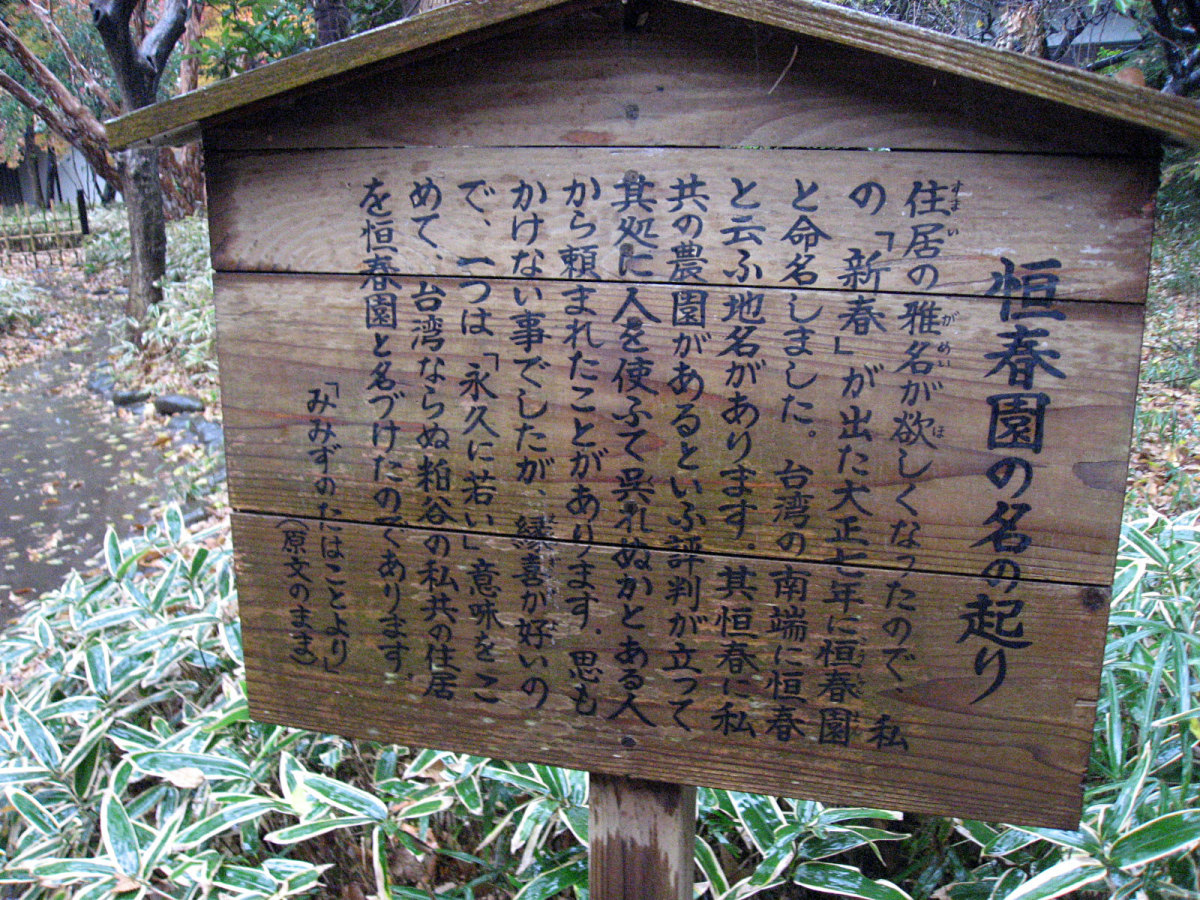 恒春園の名の起り
住居の雅名が欲しくなったので、私
の「新春」が出た大正七年に恒春園
と命名しました。台湾の南端に恒春
と云ふ地名があります。其恒春に私
共の農園があるといふ評判が立って
其処に人を使ふて呉れぬかとある人
から頼まれたことがあります。思も
かけない事でしたが、縁喜が好いの
で、一つは「永久に若い」意味をこ
めて、台湾ならぬ粕谷の私共の住居
を恒春園と名づけたのであります。
「みみずのたはことより」
（原文のまま）